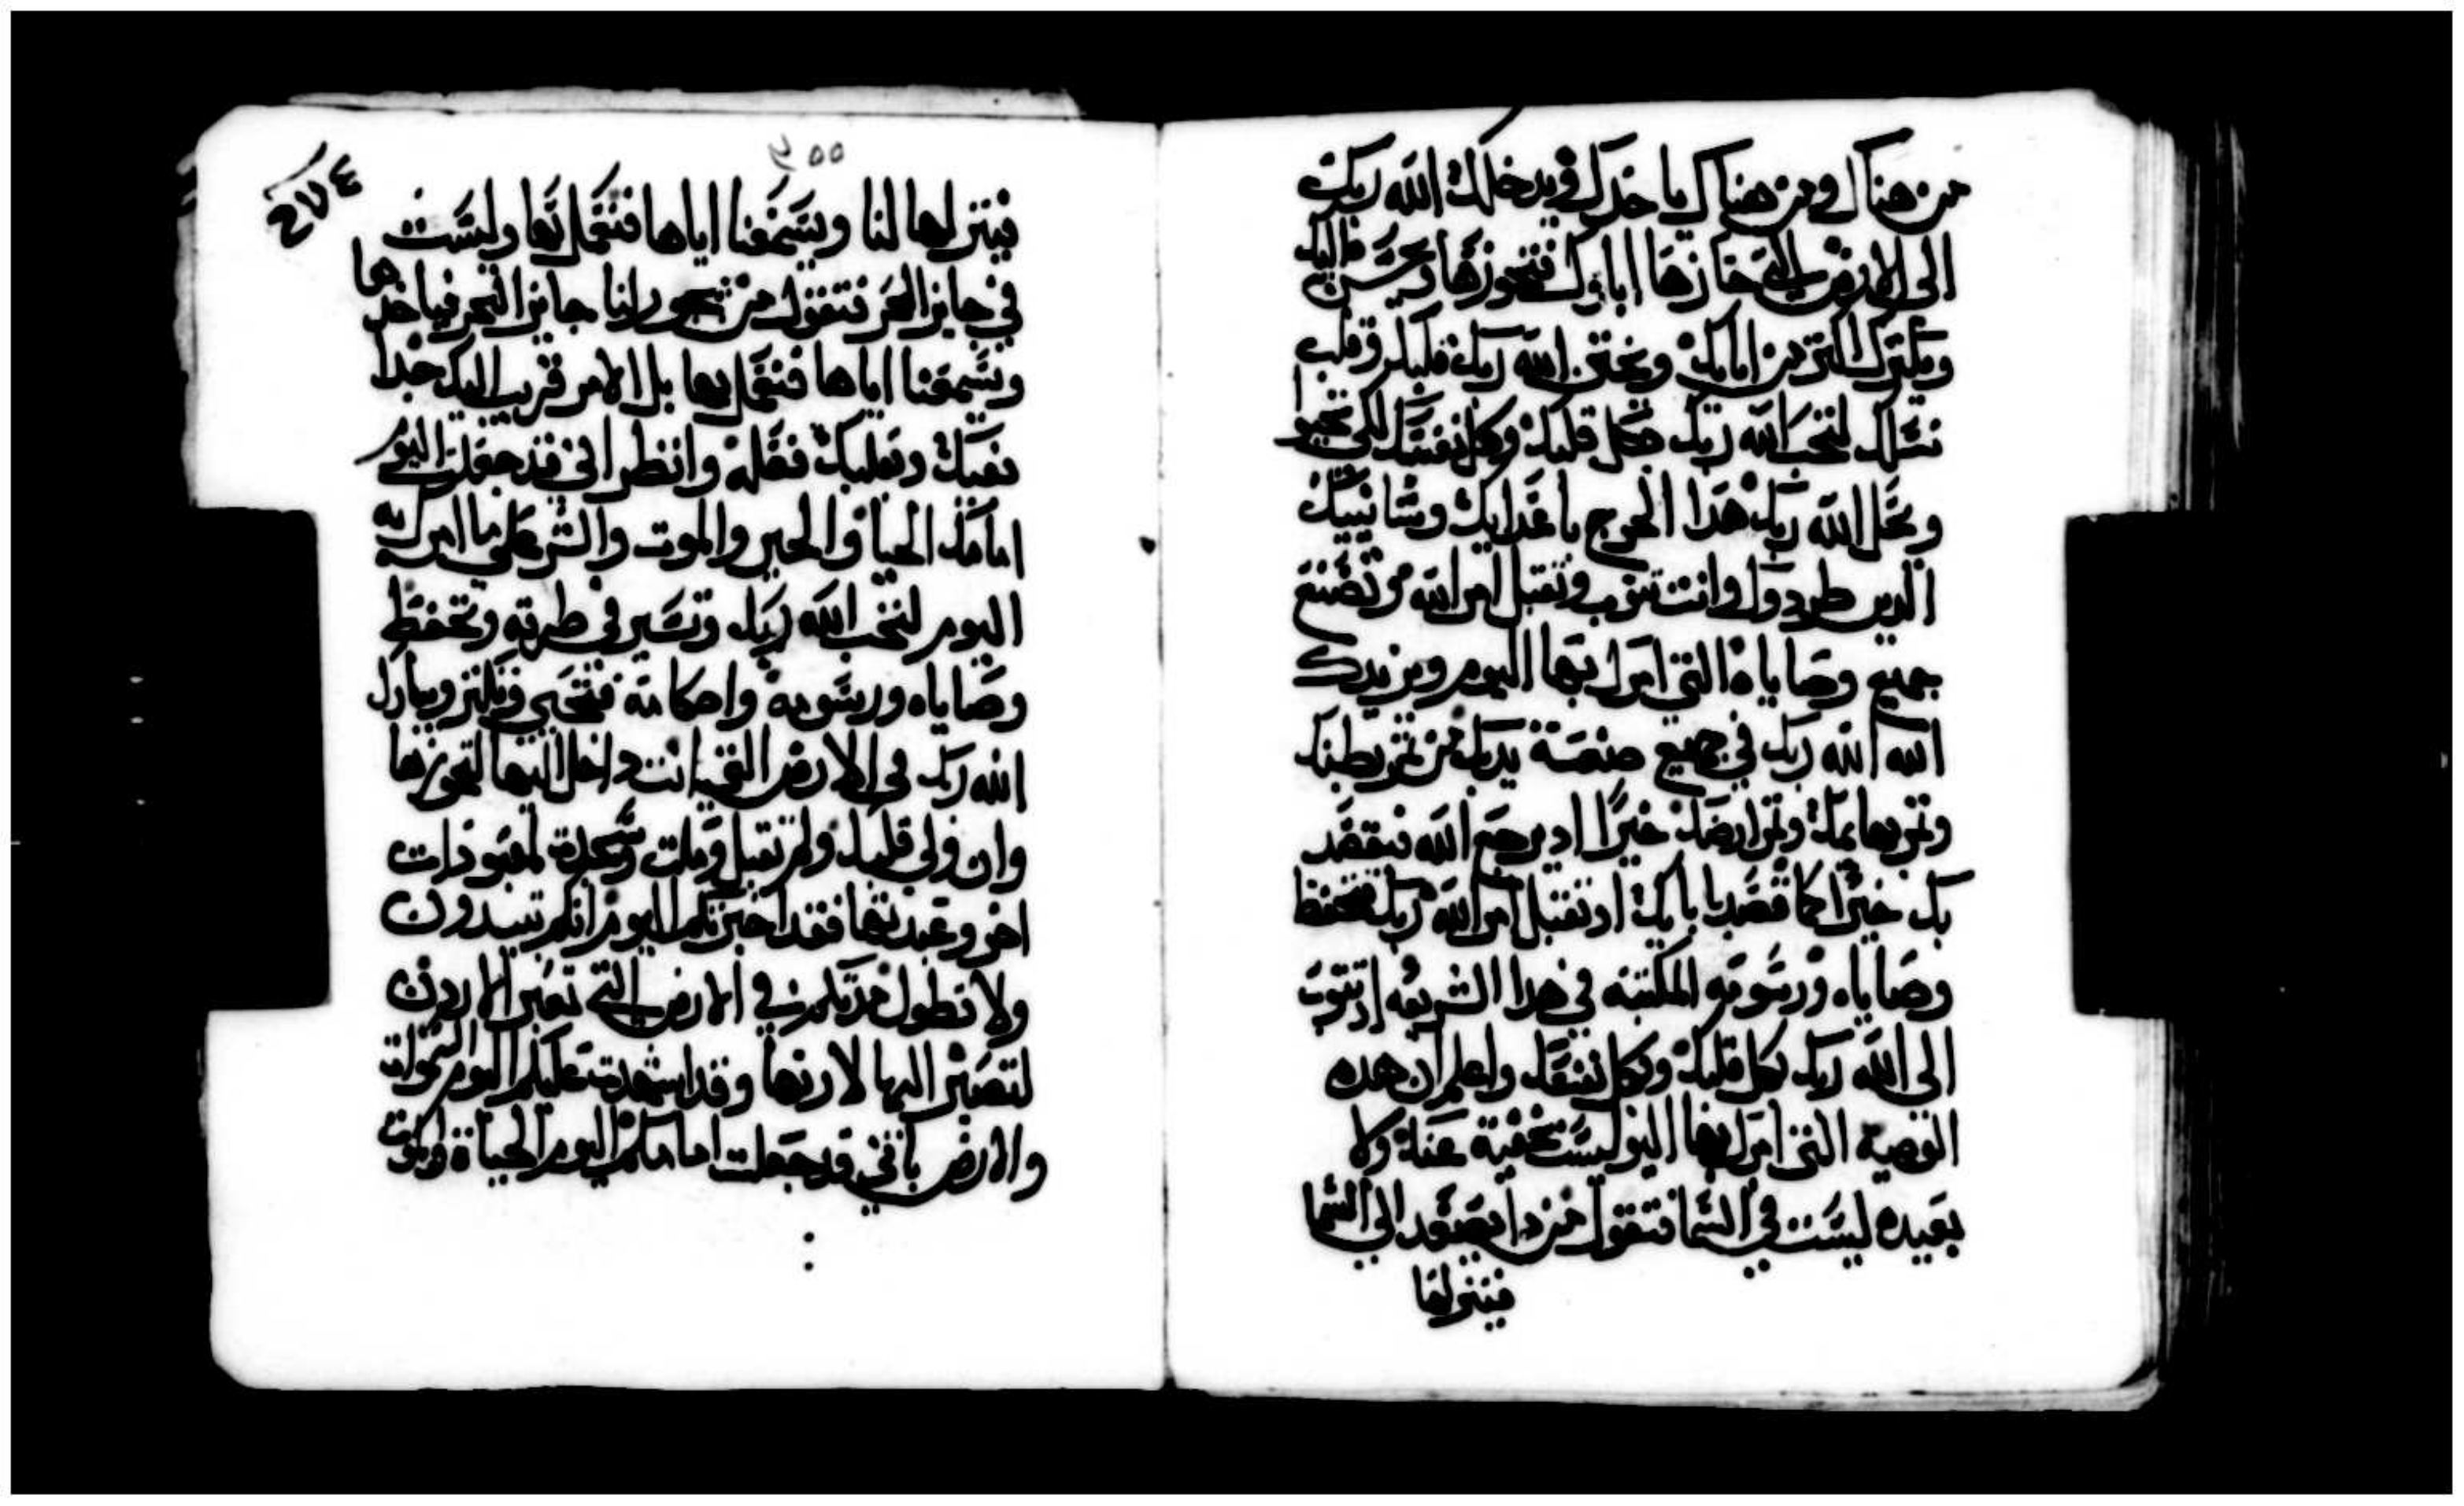 من هناك ومن هناك ياخدك ويدخلك الله ربك
الى الارض التى حازها اباوك فتحوزها ويحسن اليك
ويكترك اكتر من ابايك ويختن الله ربك قلبك وقلب
نسلك لتحب الله ربك بكل قلبك وكل نفسك لكى تحيا
ويحل الله ربك هدا الحرج باعدايك وشانييك
الدين طردوك وانت تتوب وتقبل امر الله وتصنع
جميع وصاياه التى امرك بها اليوم ويزيدك
الله الله ربك في جميع صنعة يديك من تمر بطنك
وتمر بهايمك وتمر ارضك خيرًا اد يرجع الله فيقصد
بك خيرًا كما قصد بابايك اد تقبل امر الله ربك فتحفظ
وصاياه ورسومه المكتبه في هدا الشريعه اد تتوب
الى الله ربك بكل قلبك وبكل نفسك واعلم ان هده
الوصية التى امرك بها اليوم ليست مخفية عنك ولا
بعيده ليست في السما فتقول من دا يصعد الى السما
فينزلها
٢٥٥
٢٧٤
فينزلها لنا ويسمعنا اياها فنعمل بها وليست
في جايز البحر فتقول من يجوز لنا جايز البحر فياخدها
ويسمعنا اياها فنعمل بها بل الامر قريب اليك جدا
بفيك وبقلبك فعله وانظر انى قد جعلت اليوم
امامك الحياة والخير والموت والشر على ما امرك به
اليوم لتحب الله ربك وتسير في طرقه وتحفظ
وصاياه ورسومه واحكامه فتحيى وتكتر ويبارك
الله ربك في الارض التى انت داخل اليها لتحوزها
وان ولى قلبك ولم تقبل وملت وسجدت لمعبودات
اخر وعبدتها فقد اخبرتكم اليوم انكم تبيدون
ولا تطول مدتكم في الارض التى تعبر الاردن
لتصير اليها لارتها وقد اشهدت عليكم اليوم السموات
والارض بانني قد جعلت امامكم اليوم الحياة والموت